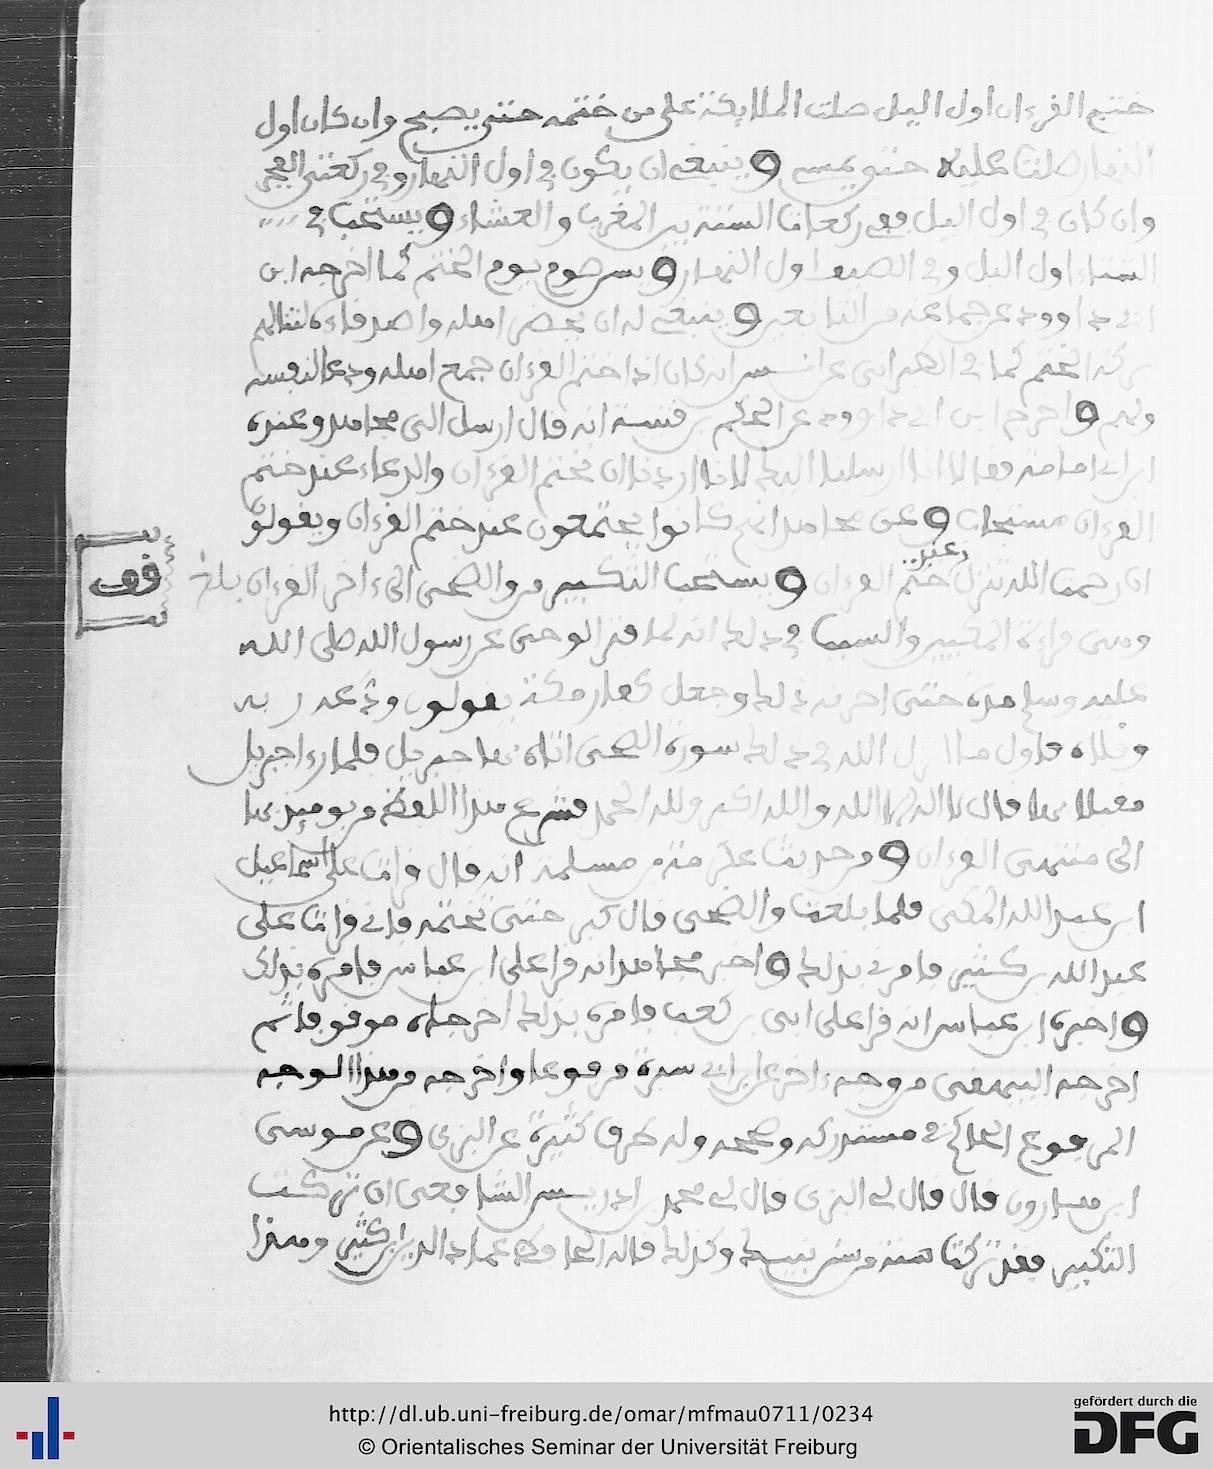 ختم القرءان اول اليل صلت الملايكة على من ختمه حتى يصبح وان كان اول
النهار صلت عليه حتى يمسي وينبغي ان يكون في اول النهار وفي ركعتي الفجر
وان كان في اول اليل ففي ركعات السنة بين المغرب والعشاء ويستحب في
الشتاء اول اليل وفي الصيف اول النهار ويسن صوم يوم الختم كما اخرجه ابن
ابي داوود عن جماعة من التابعين وينبغي له ان يحضر اهله واصدقاءه لتنالهم
بركة الختم كما في الطبراني عن انس انه كان اذا ختم القرءان جمع اهله ودعا لنفسه
ولهم واخرج ابن ابي داوود عن الحكم بن قتيبة انه قال ارسل الى مجاهد وعنده
ابن ابي امامة فقالا انا ارسلنا اليك لانا اردنا ان نختم القرءان والدعاء عند ختم
القرءان مستجاب وعن مجاهد انهم كانوا يجتمعون عند ختم القرءان ويقولون
عند
ان رحمت الله تنزل ختم القرءان ويستحب التكبير من والضحى الى ءاخر القرءان بلغ
قف
وهي قراءة المكيين والسبب في ذلك انه لما فتر الوحي عن رسول الله صلى الله
عليه وسلم مدة حتى احزنه ذلك وجعل كفار مكة يقولون ودعه ربه
وقلاه فاول ما انزل الله في ذلك سورة الضحى اتاه بها جبريل فلما رءا جبريل
مقبلا بها قال لا اله الا الله والله اكبر ولله الحمد فشرع هذا اللفظ من يوميذ بها
الى منتهى القرءان ومن حديث عكرمة بن مسلمة انه قال قرات على اسماعيل
ابن عبد الله المكي فلما بلغت والضحى قال كبر حتى تختم فاني قرات على
عبد الله بن كثير فامرني بذلك واخبر مجاهد انه قرا على ابن عباس فامره بذلك
واخبره ابن عباس انه قرا على ابي بن كعب فامره بذلك اخرجاه موقوفا ثم
اخرجه البيهقي من وجه ءاخر عن ابن ابي بزة مرفوعا واخرجه من هذا الوجه
المرفوع الحاكم في مستدركه وصححه وله طرق كثيرة عن البزي وعن موسى
ابن هارون قال قال لي البزي قال لي محمد بن ادريس الشافعي ان تركت
التكبير فقد تركت سنة من سنن نبيك وكذلك قاله الحافظ عماد الدين ابن كثير وهذا
http://dl.ub.uni-freiburg.de/omar/mfmau0711/0234
© Orientalisches Seminar der Universität Freiburg
gefördert durch die
DFG